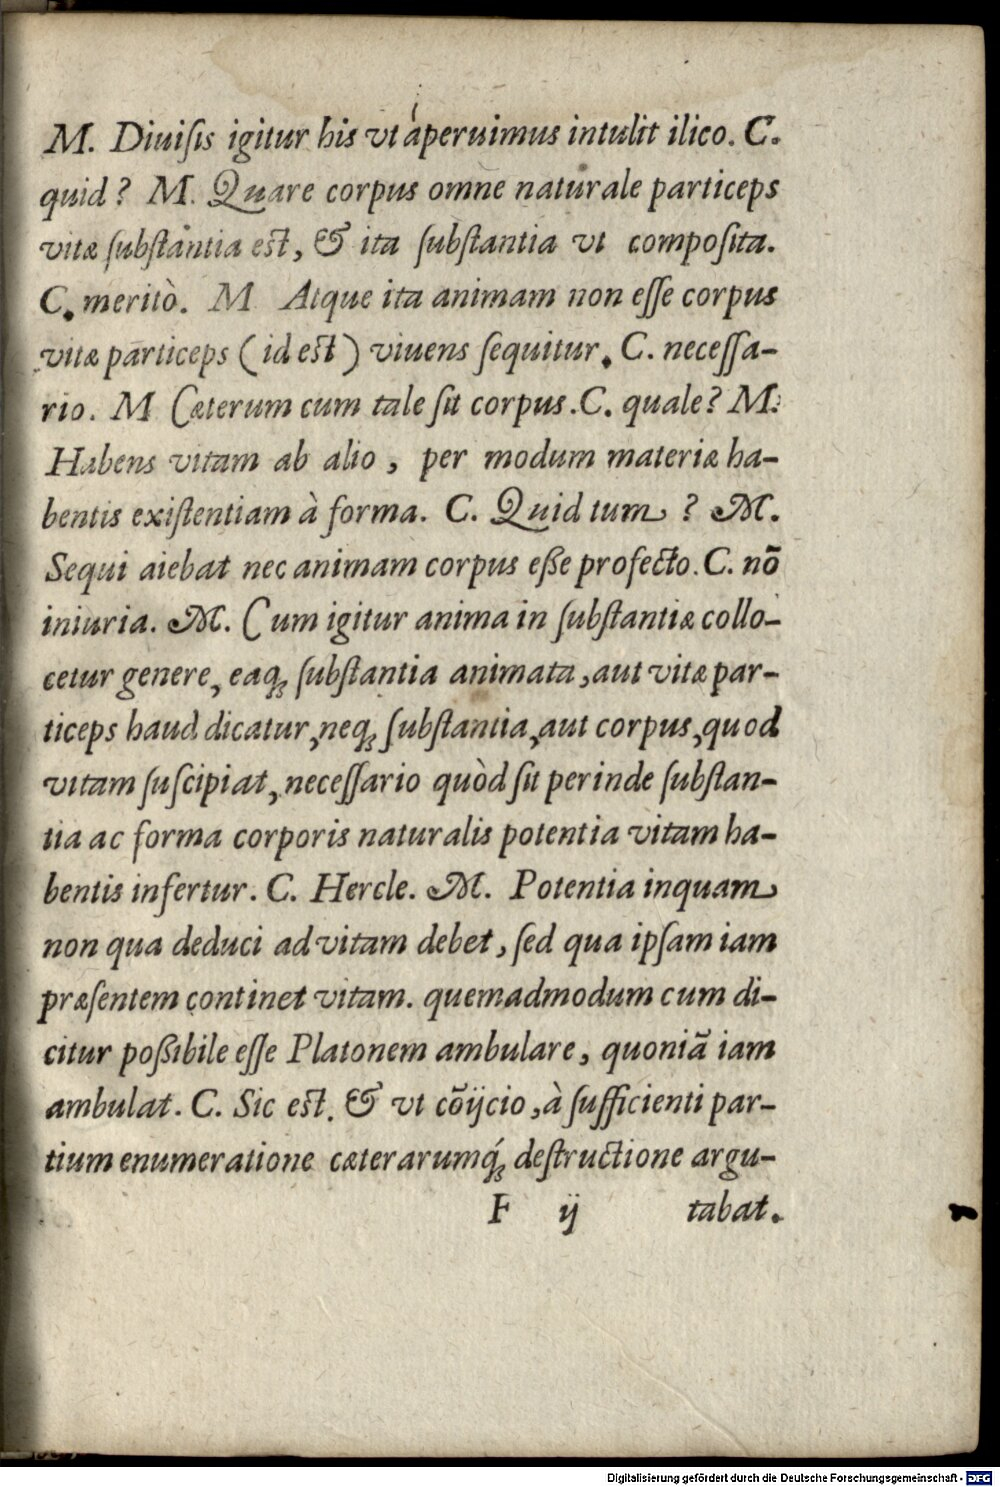 M. Diuiſis igitur his vt aperuimus intulit ilico. C.
quid? M. Quare corpus omne naturale particeps
vitæ ſubſtantia eſt, & ita ſubſtantia vt compoſita.
C. meritò. M Atque ita animam non eſſe corpus
vitæ particeps (id eſt) viuens ſequitur. C. neceſſa-
rio. M Cæterum cum tale ſit corpus. C. quale? M.
Habens vitam ab alio, per modum materiæ ha-
bentis exiſtentiam à forma. C. Quid tum? M.
Sequi aiebat nec animam corpus eße profecto. C. nō
iniuria. M. Cum igitur anima in ſubſtantiæ collo-
cetur genere, eaq́; ſubſtantia animata, aut vitæ par-
ticeps haud dicatur, neq; ſubſtantia, aut corpus, quod
vitam ſuſcipiat, neceſſario quòd ſit perinde ſubſtan-
tia ac forma corporis naturalis potentia vitam ha-
bentis infertur. C. Hercle. M. Potentia inquam
non qua deduci ad vitam debet, ſed qua ipſam iam
præſentem continet vitam. quemadmodum cum di-
citur poßibile eſſe Platonem ambulare, quoniā iam
ambulat. C. Sic eſt. & vt cōijcio, à ſufficienti par-
tium enumeratione cæterarumq́; deſtructione argu-
F ij tabat.
Digitalisierung gefördert durch die Deutsche Forschungsgemeinschaft - DFG